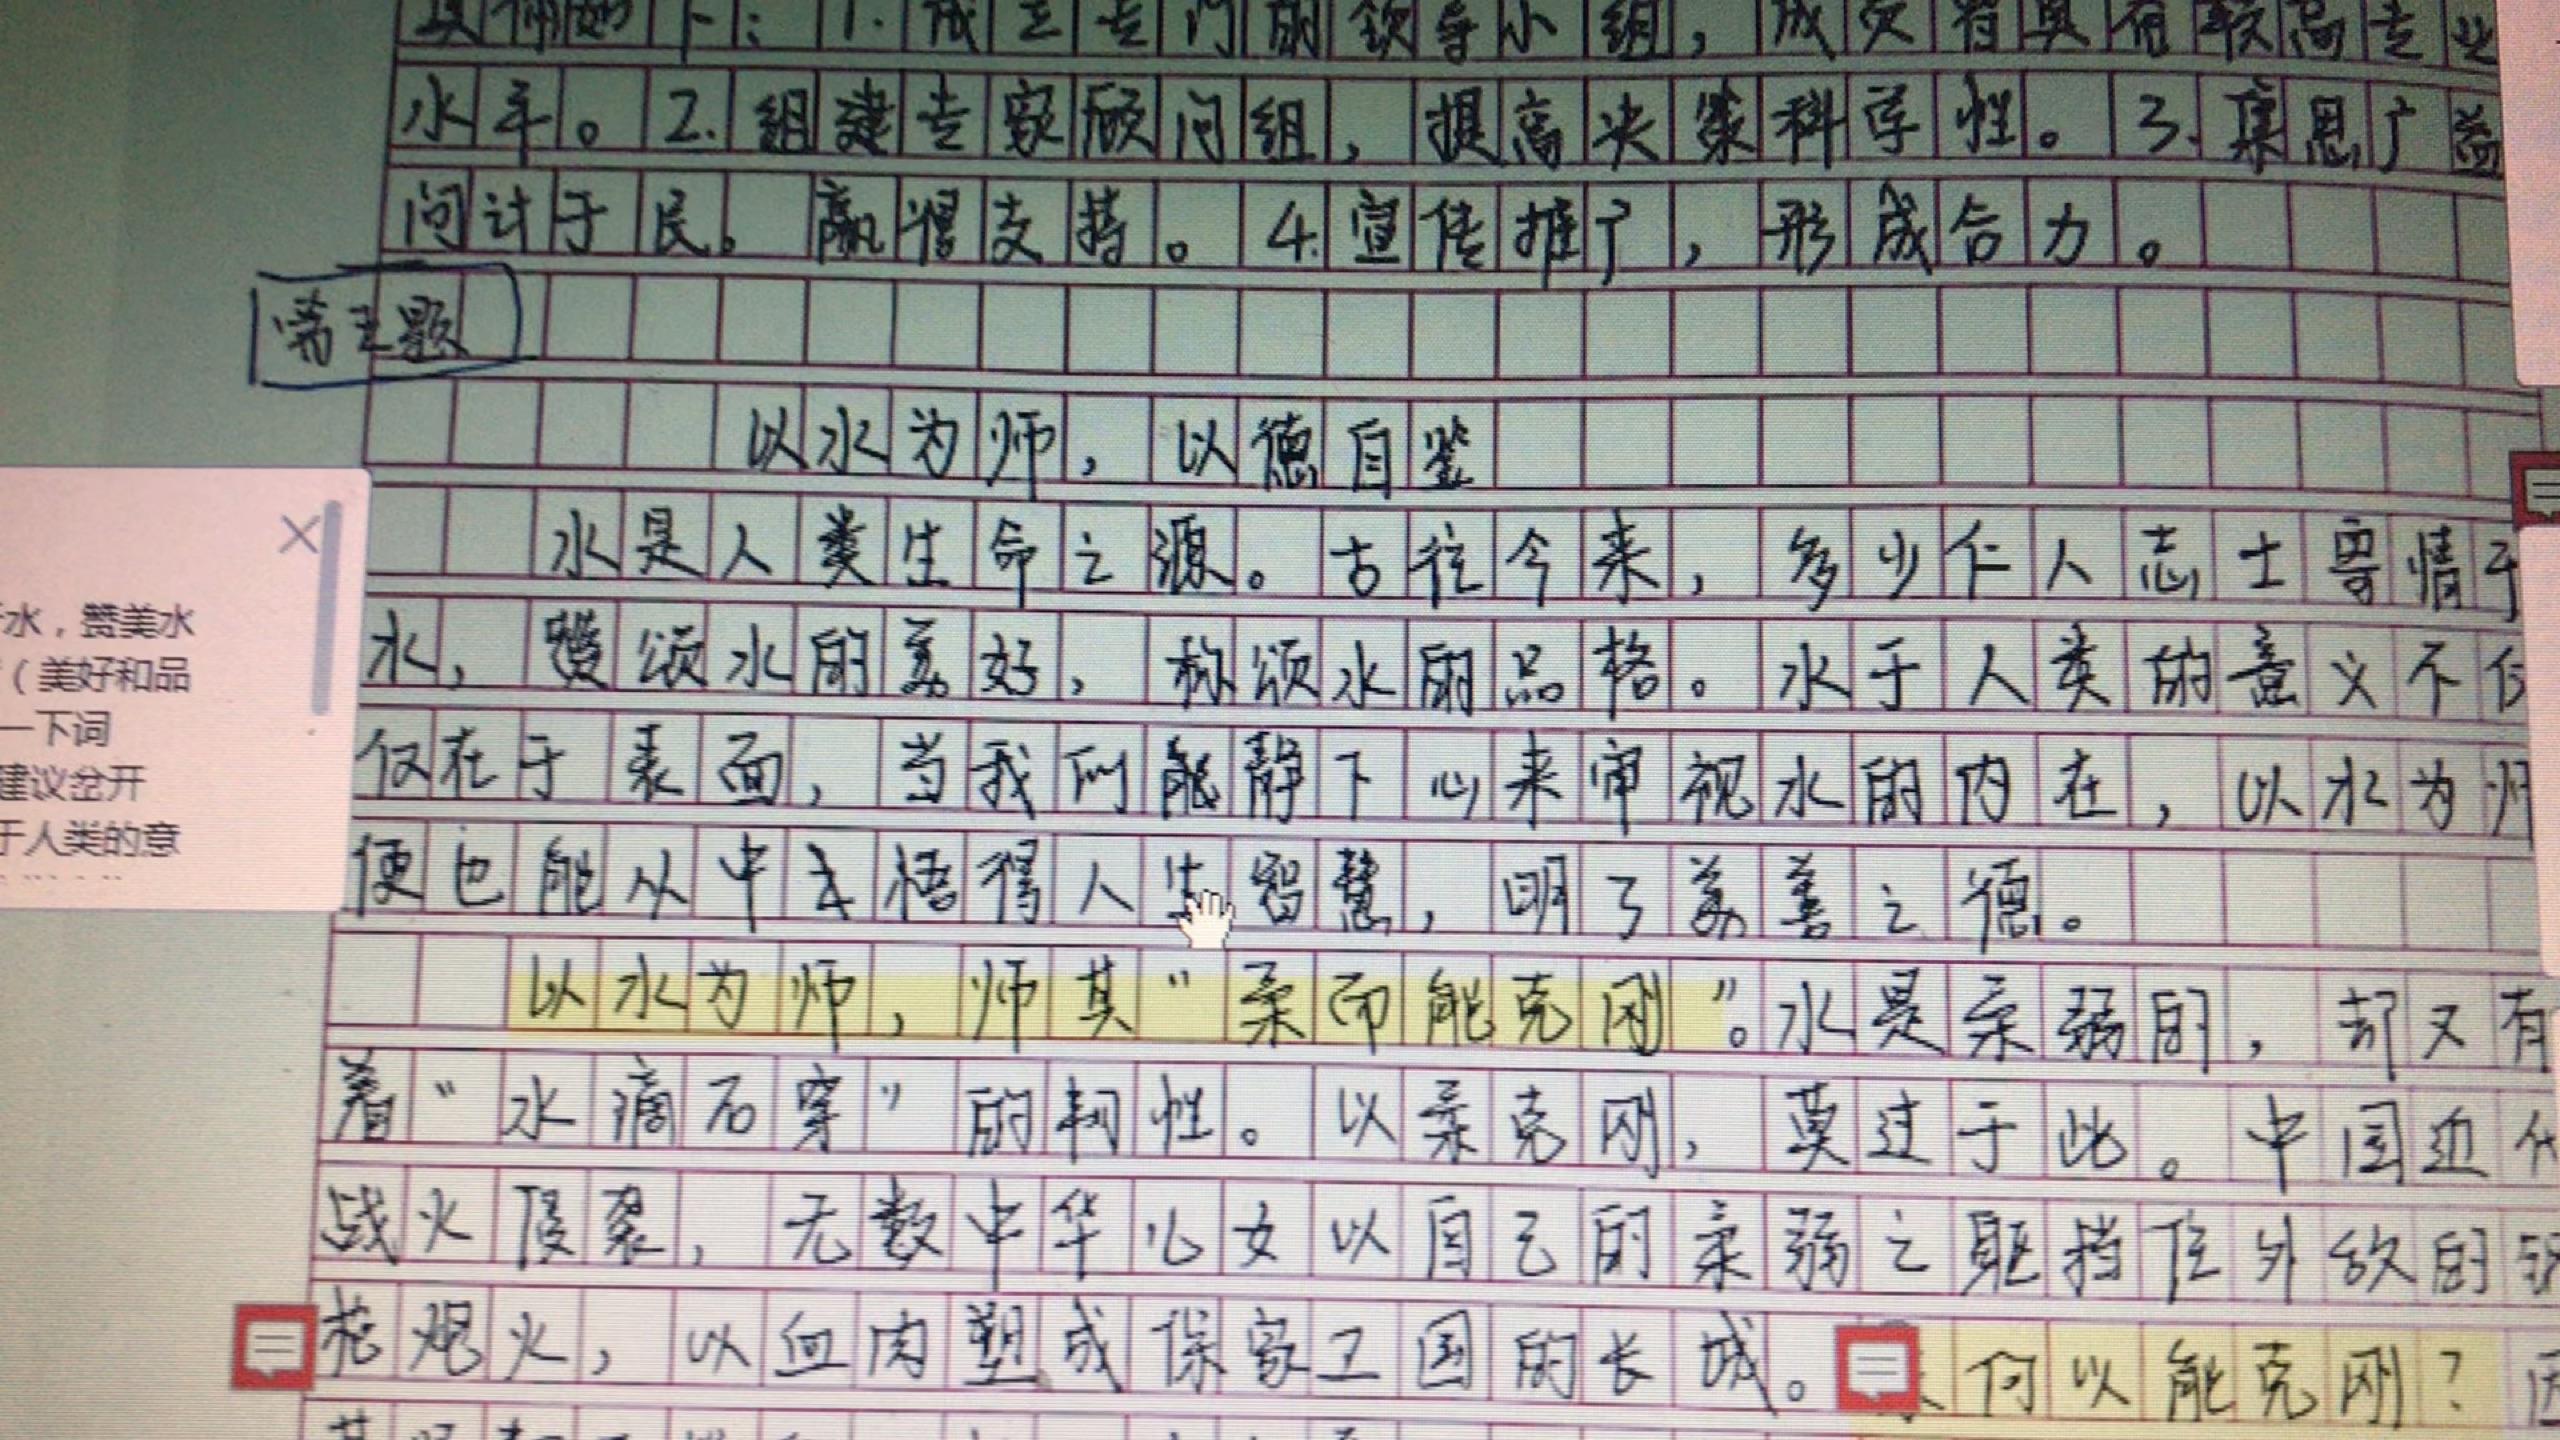 具体如下：1.成立专门的领导小组，成员有具有较高专业
水平。2.组建专家顾问组，提高决策科学性。3.集思广益
问计于民。赢得支持。4.宣传推广，形成合力。
第五题
以水为师，以德自鉴
水是人类生命之源。古往今来，多少仁人志士寄情于
水，赞颂水的美好，称颂水的品格。水于人类的意义不仅
仅在于表面，当我们能静下心来审视水的内在，以水为师
便也能从中去悟得人生智慧，明了美善之德。
以水为师，师其"柔而能克刚"。水是柔弱的，却又有
着"水滴石穿"的韧性。以柔克刚，莫过于此。中国近代
战火侵袭，无数中华儿女以自己的柔弱之躯挡住外敌的
枪炮火，以血肉塑成保家卫国的长城。何以能克刚？因
水，赞美水
（美好和品
一下词
建议岔开
于人类的意